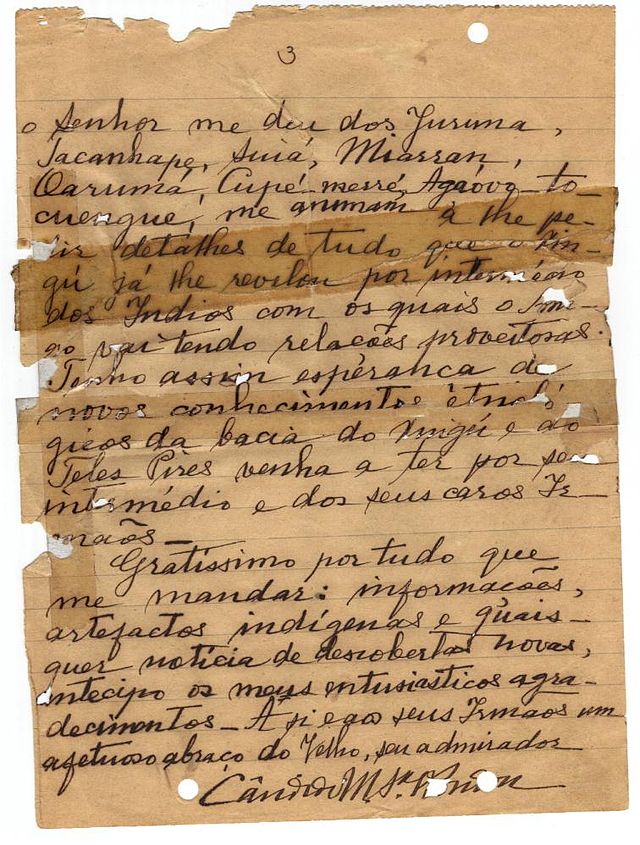 3
o Senhor me deu dos Juruna,
Tacanhape, Suiá, Miarran,
Oarumá, Cupé-merré, Agaóvo-to
cuengue, me animam à lhe pe-
dir detalhes de tudo que o Xin-
gú já lhe revelou por intermédio
dos Índios com os quais o Ami-
go vai tendo relações proveitosas.
Tenho assim espêrança de
novos conhecimentos êtnoló
gicos da bacia do Xingú e do
Teles Pires venha a ter por seu
intermédio e dos seus caros Ir-
mãos-
Gratíssimo por tudo que
me mandar: informacões,
artefactos indígenas e quais-
quer notícia de descobertas novas,
antecipo os meus entusiasticos agra-
decimentos- A si e aos seus Irmãos um
afetuoso abraço do Velho, seu admirador
Cândido M. S. Rondon